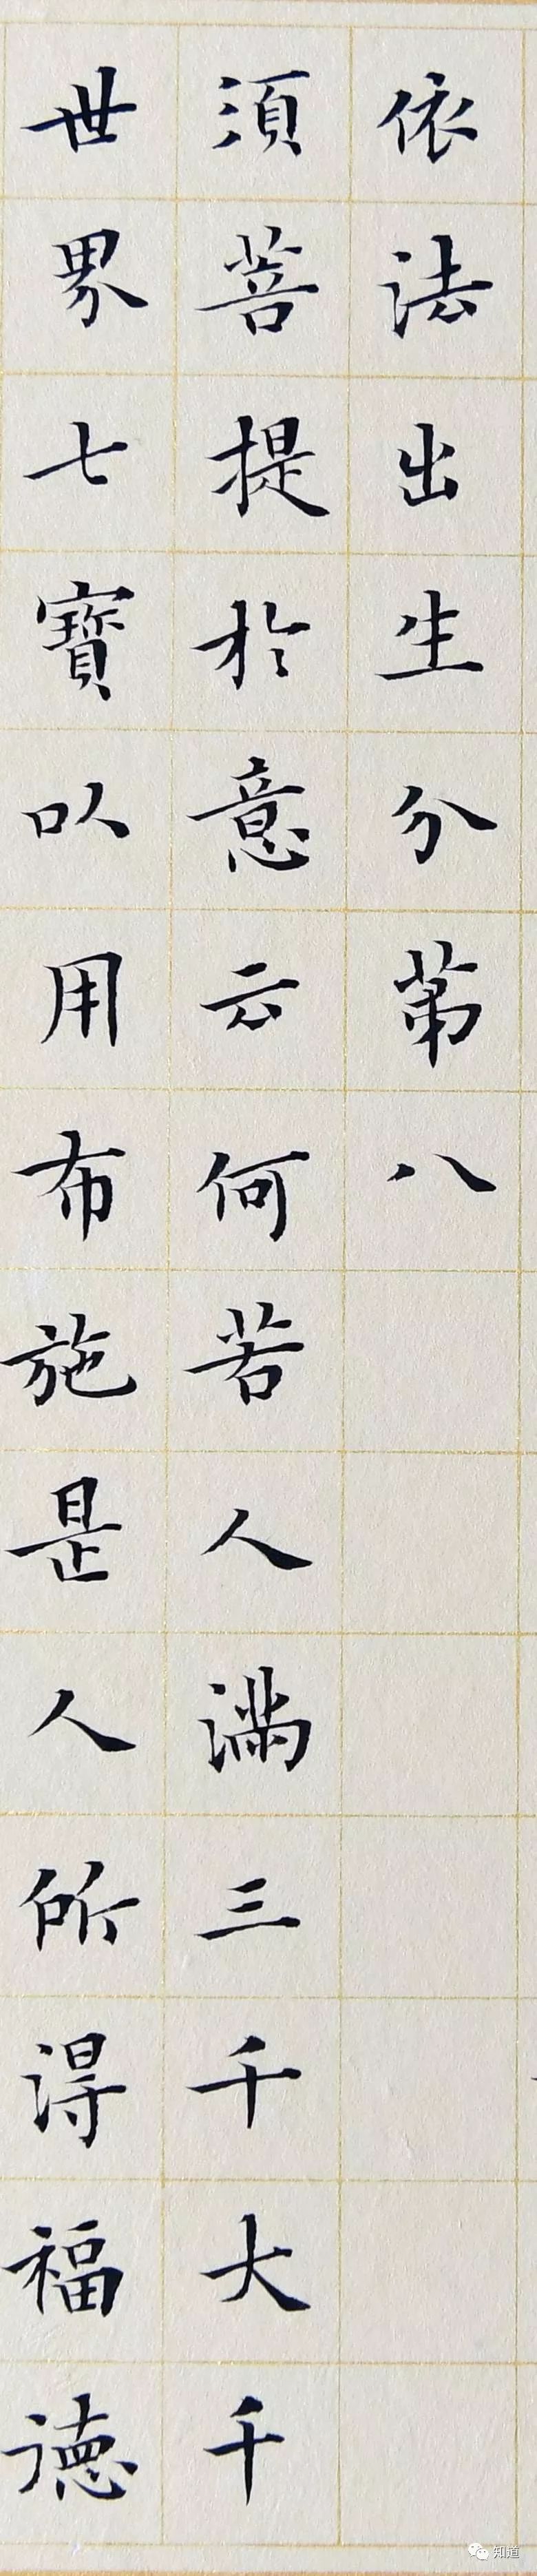 依法出生分第八
須菩提於意云何若人滿三千大千
世界七寶以用布施是人所得福德
知道